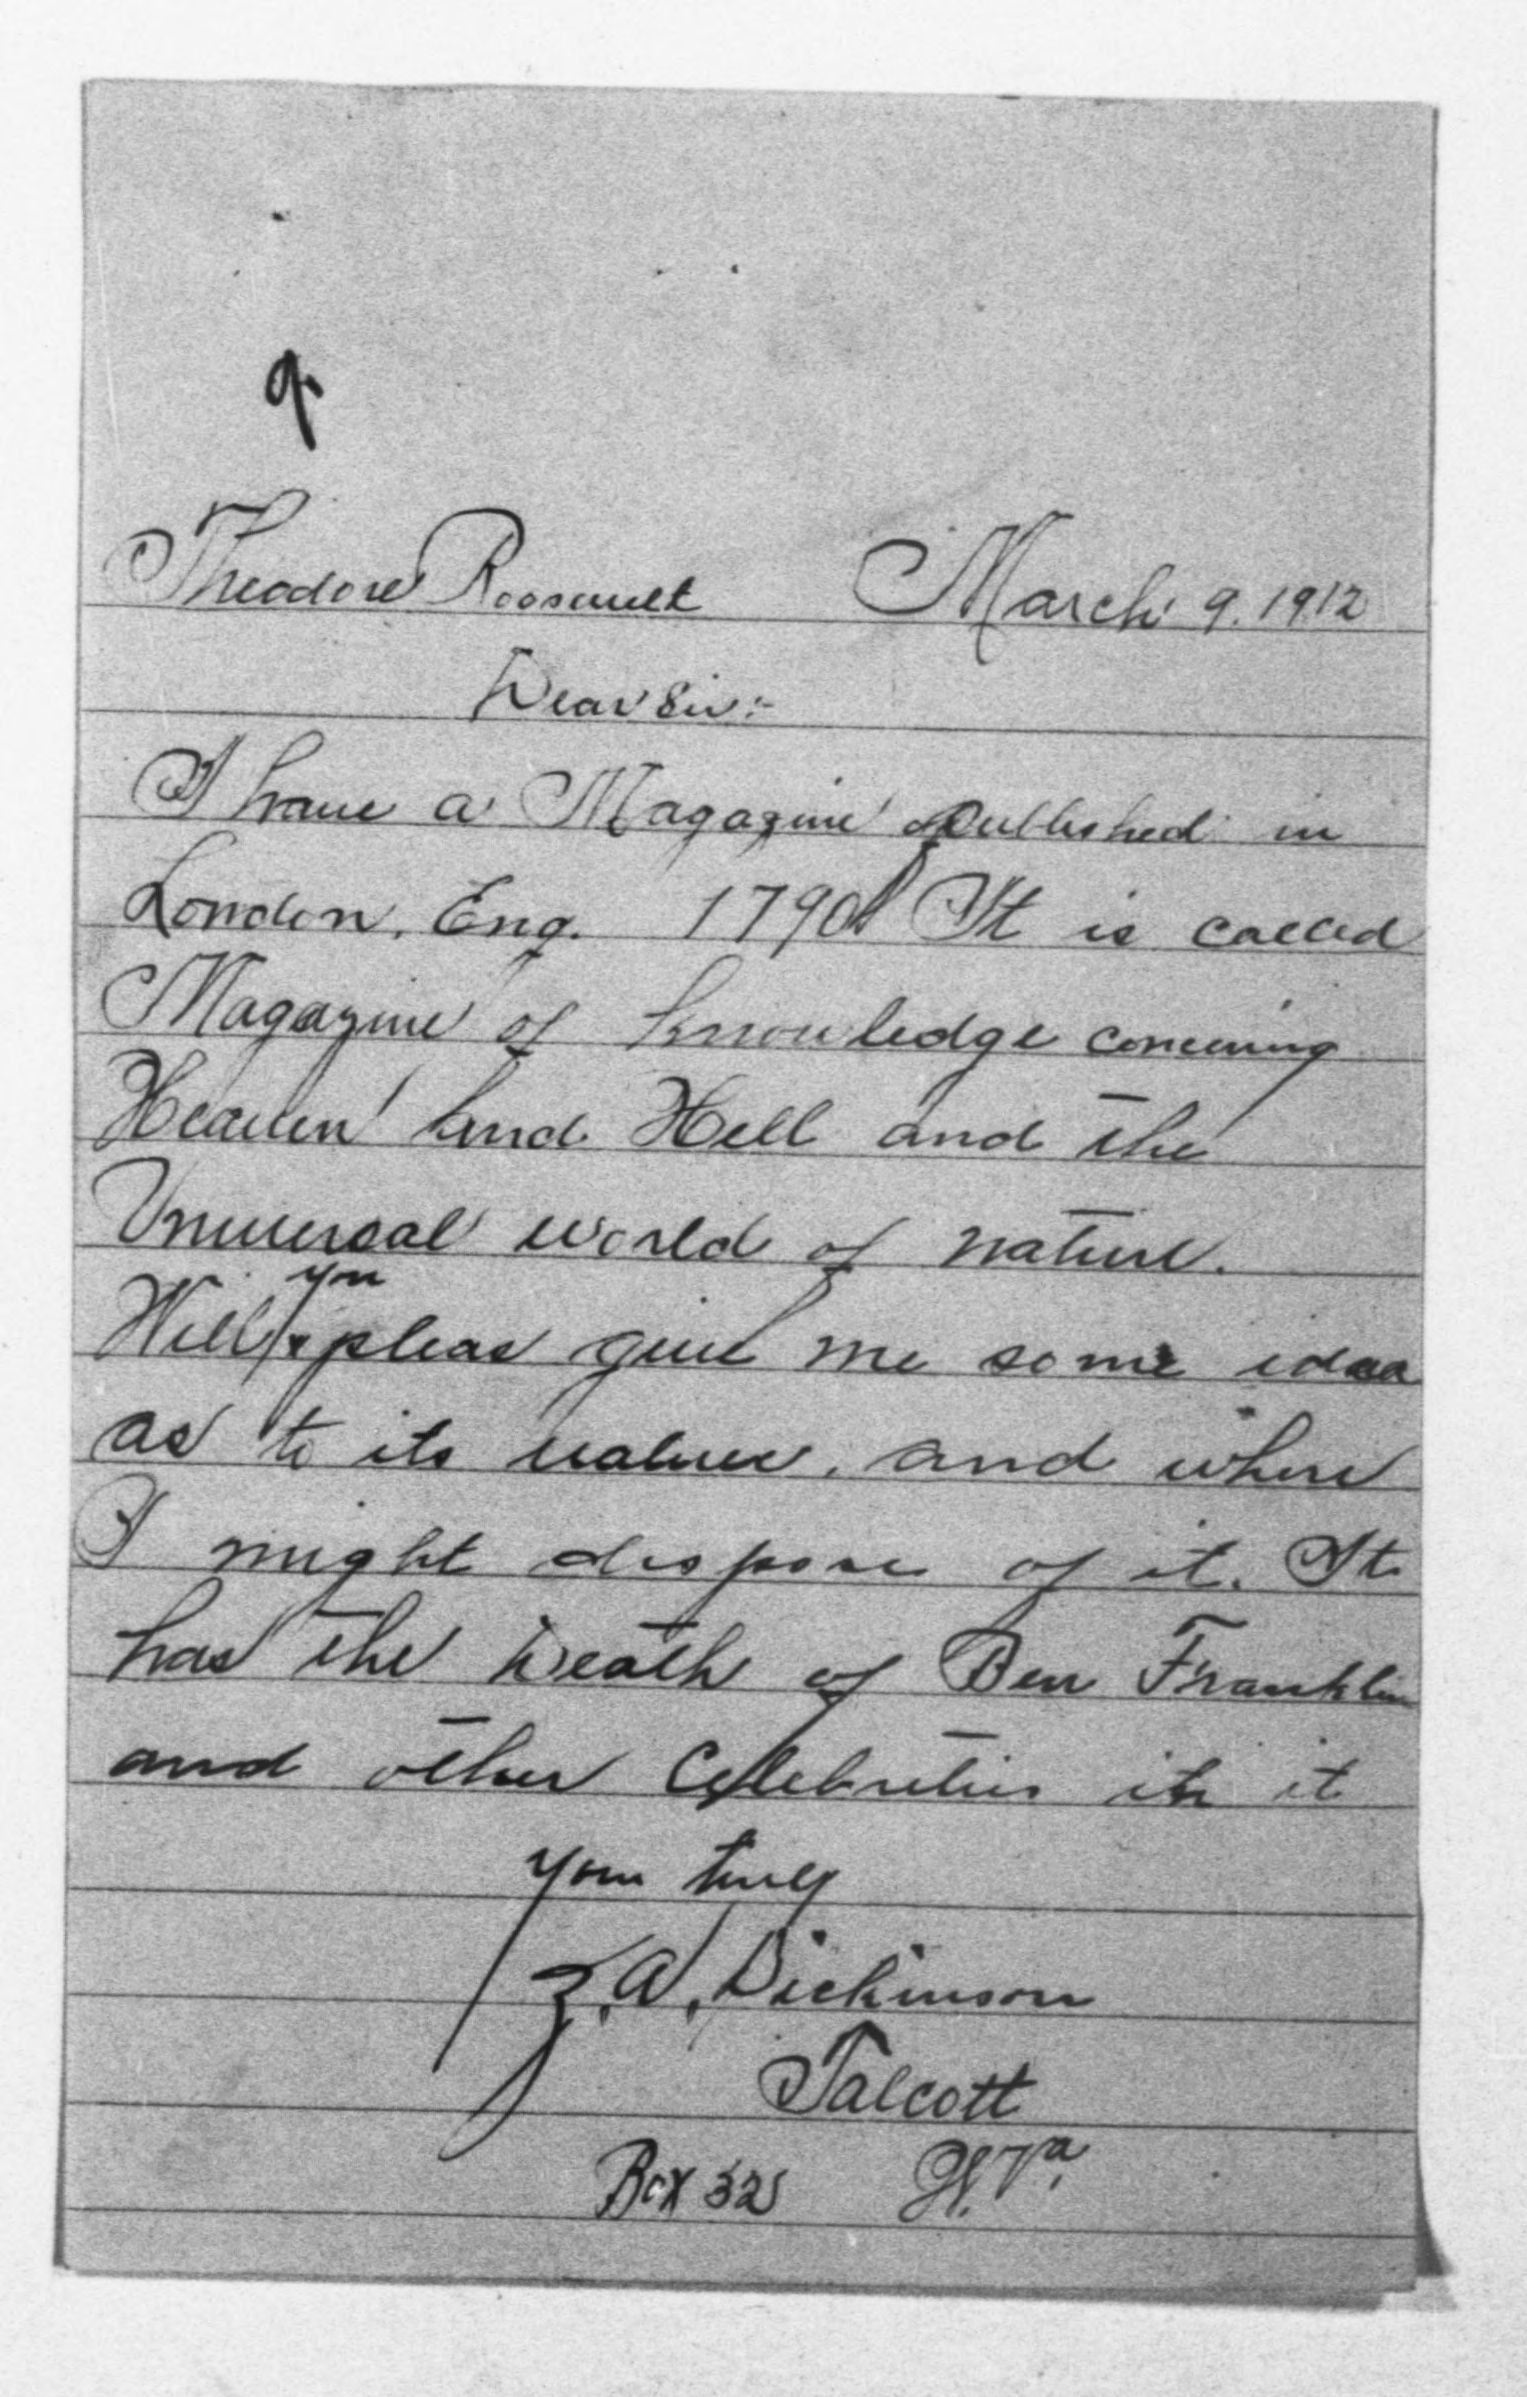 Theodore Roosevelt March 9. 1912
Dear Sir:-
I have a Magazine published in
London, Eng. 1790 It is called
Magazine of knowledge concerning
Heaven and Hell and the
Universal world of nature.
you
Will pleas give me some idea
as to its value, and where
I might dispose of it. It
has the Death of Ben Franklin
and other Celebrities in it
Your truly
Z. A. Dickinson
Talcott
Box 32 W. Va.